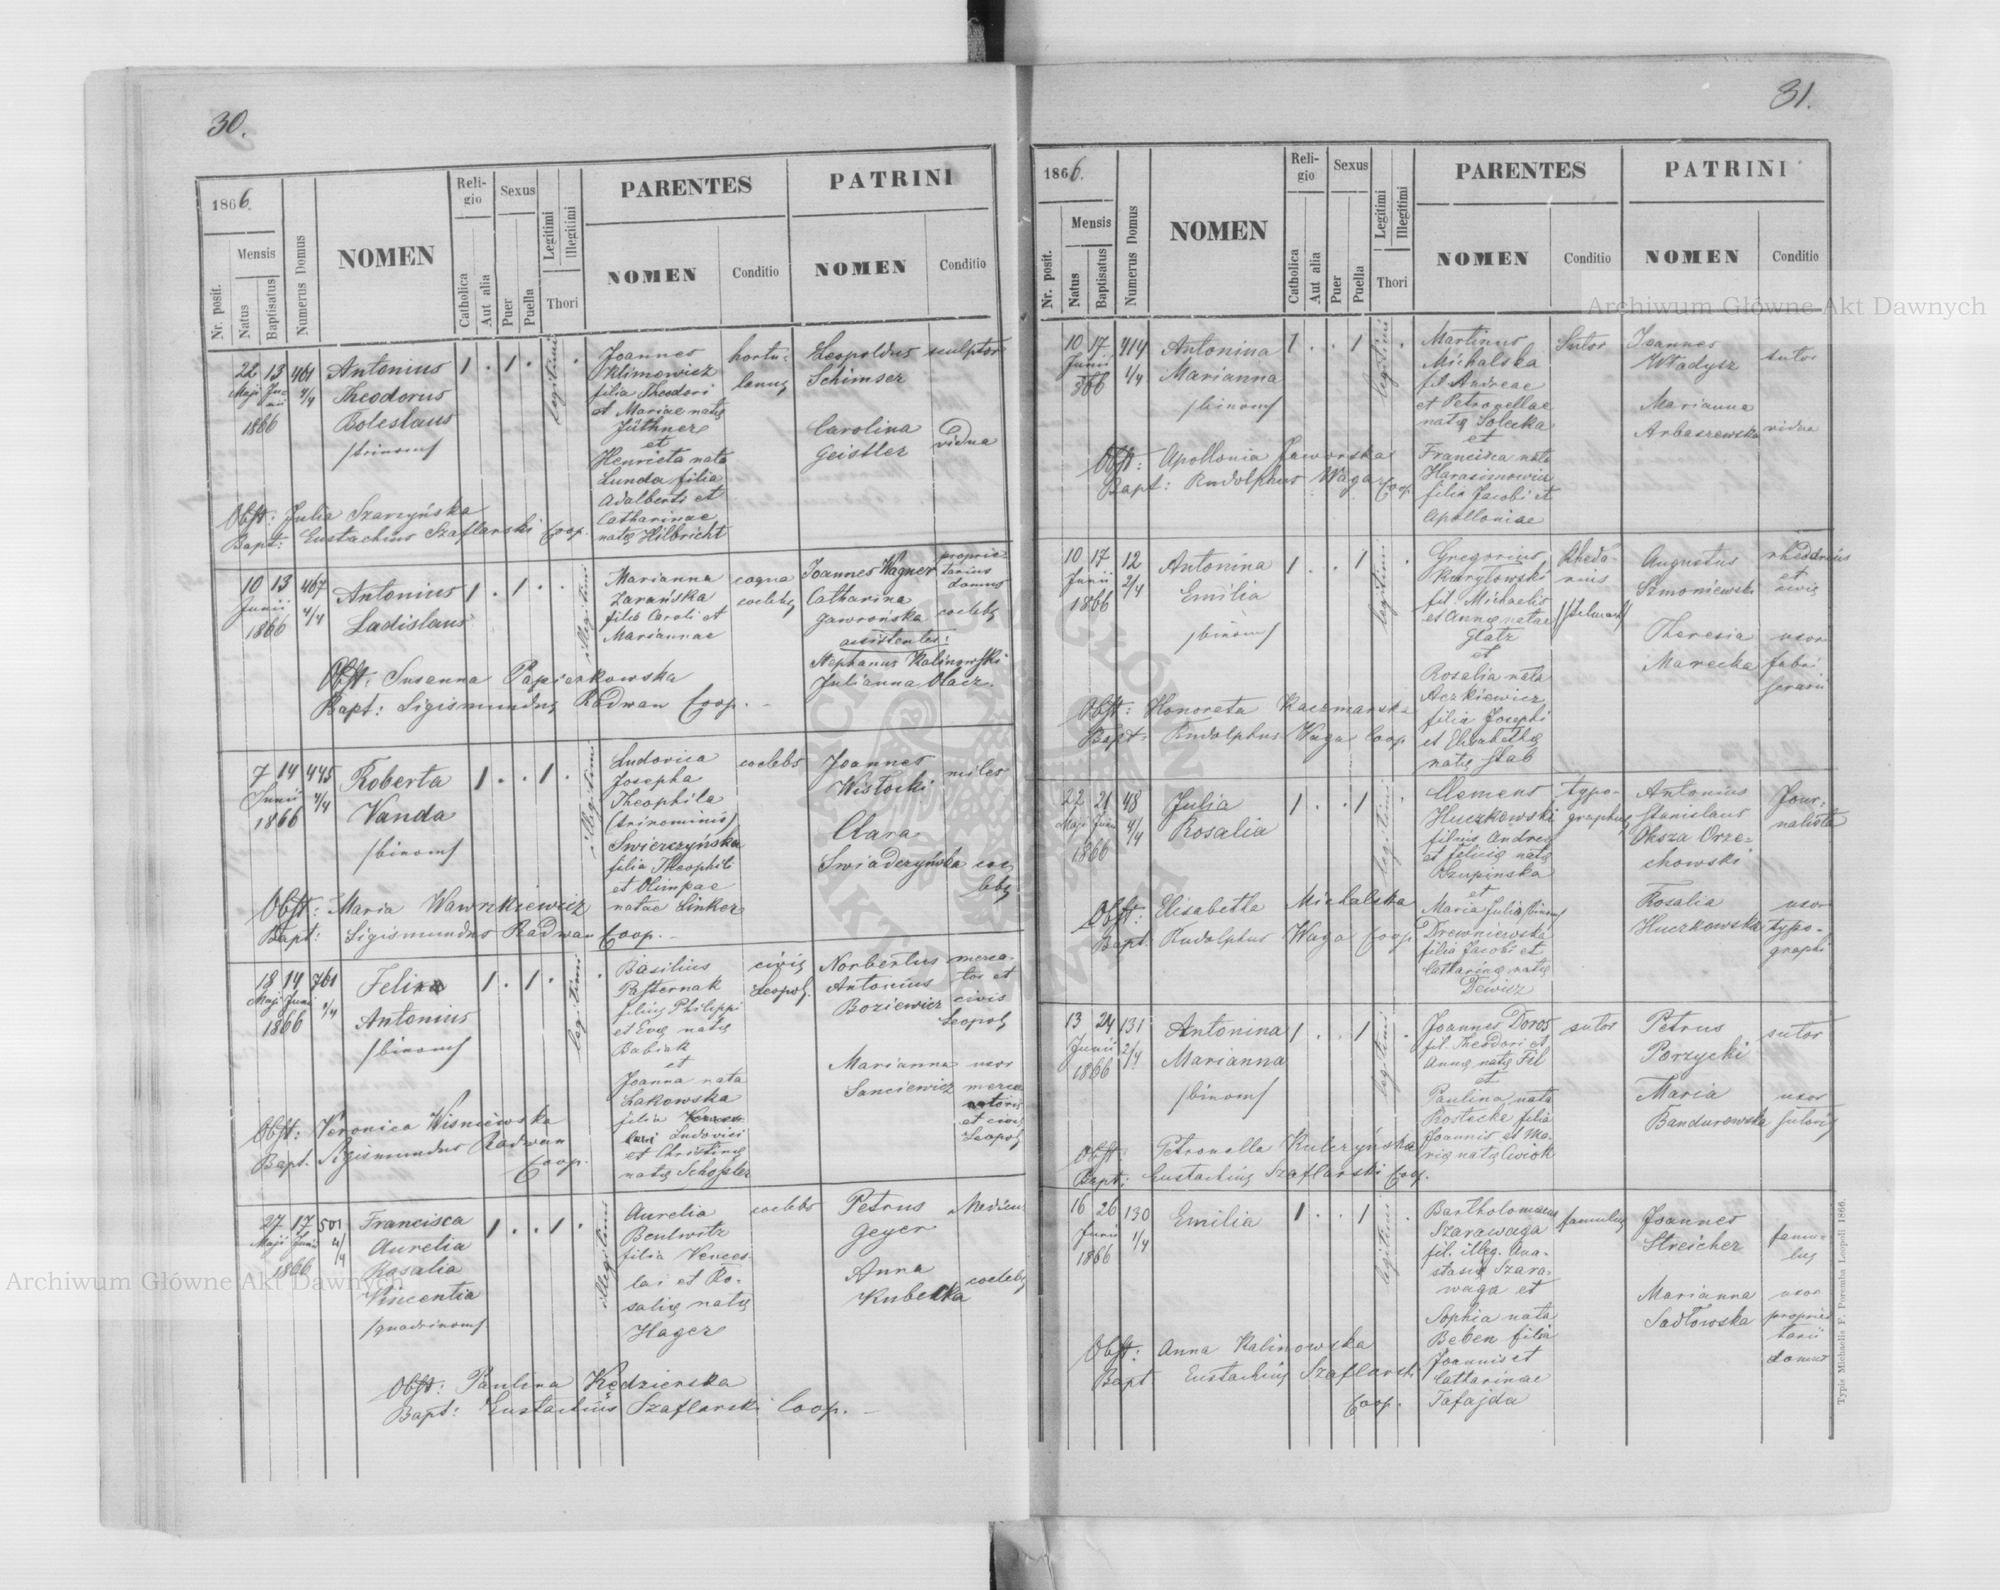 30.
1866.
Nr. posit.
Mensis
Natus
Baptisatus
Numerus Domus
NOMEN
Reli-
gio
Catholica
Aut alia
Sexus
Puer
Puella
Legitimi
Illegitimi
Thori
PARENTES
NOMEN
Conditio
PATRINI
NOMEN
Conditio
22 13 461
Maji Ju-
nii 4/4
1866
Antonius
Theodorus
Boleslaus
/trinom/
1 . 1 .
legitimi
Joannes
Klimowicz
filia Theodori
et Mariae natę
Jüthner
et
Henrieta nata
Lunda filia
Adalberti et
Catharinae
natę Hilbricht
hortu-
lanus
Leopoldus
Schimser
sculptor
Carolina
Geistler
vidua
Obst: Julia Szarzyńska
Bapt: Eustachius Szaflarski Coop.
10 13 467
Junii 4/4
1866
Antonius
Ladislaus
1 . 1 . .
illegitimi
Marianna
Zarańska
filia Caroli et
Mariannae
coqua
coelebs
Joannes Wagner
proprie-
tarius
domus
Catharina
Gawrońska
coelebs
assistentes:
Stephanus Kalinowski
Julianna Macz.
Obst: Susanna Papierkowska
Bapt: Sigismundus Radwan Coop.
7 14 445
Junii 4/4
1866
Roberta
Vanda
/binom/
1 . . 1 .
illegitimi
Ludovica
Josepha
Theophila
(trinominis)
Swierczyńska
filia Theophili
et Olimpae
natae Linker
coelebs
Joannes
Wisłocki
miles
Clara
Swiaderzyńska
coe-
lebs
Obst: Maria Wawrzkiewicz
Bapt: Sigismundus Radwan Coop.
18 14 761
Maji Junii
1866
Felix
Antonius
/binom/
1 . 1 . .
legitimi
Basilius
Pasternak
filius Philippi
et Evę natę
Babiak
et
Joanna nata
Łakowska
filia
Ludovici
et Christinę
natę Schossler
civis
Leopol.
Norbertus
Antonius
Boziewicz
merca-
tor et
civis
Leopol
Marianna
Sanciewicz
uxor
merca
atoris
et civis
Leopol
Obst: Veronica Wisniewska
Bapt. Sigismundus Radwan
Coop.
27 17 501
Maji Junii 4/4
1866
Francisca
Aurelia
Rosalia
Vincentia
/quadrinom/
1 . . 1 .
illegitimi
Aurelia
Beulwitz
filia Vences-
lai et Ro-
salię natę
Hager
coelebs
Petrus
Geyer
Medicus
Anna
Kubelka
coelebs
Obst: Paulina Kędzierska
Bapt: Eustachius Szaflarski Coop.
31.
1866.
Nr. posit.
Mensis
Natus
Baptisatus
Numerus Domus
NOMEN
Reli-
gio
Catholica
Aut alia
Sexus
Puer
Puella
Legitimi
Illegitimi
Thori
PARENTES
NOMEN
Conditio
PATRINI
NOMEN
Conditio
10 17 414
Junii 1/4
866
Antonina
Marianna
/binom/
1 . . 1
legitimi
Martinus
Michalska
fil. Andreae
et Petronellae
natę Solecka
et
Francisca nata
Harasimowicz
filia Jacobi et
Apolloniae
Sutor
Joannes
Władysz
sutor
Marianna
Arbaszewska
vidua
Obst: Apollonia Jaworska
Bapt: Rudolphus Waga Coop
10 17 12
Junii 2/4
1866
Antonina
Emilia
/binom/
1 . . 1 .
legitimi
Gregorius
Karytowski
fil. Michaelis
et Annę natae
Glatz
et
Rosalia nata
Aczkiewicz
filia Josephi
et Elisabethę
natę Stab
rheda-
rius
/stelmach/
Augustus
Szmoniewski
rhedarius
et
civis
Theresia
Marecka
uxor
fabri
ferarii
Obst: Honoreta Kaczmarska
Bapt: Rudolphus Waga Coop
22 21 48
Maji Junii 4/4
1866
Julia
Rosalia
1 . . 1 .
legitimi
Clemens
Huczkowski
filius Andreę
et Felicię natę
Rzupinska
et
Maria Julia /binom/
Drewniewska
filia Jacobi et
Catharinę natę
Dewicz
typo-
graphus
Antonius
Stanislaus
Oksza Orze-
chowski
Jour-
nalista
Rosalia
Huczkowska
uxor
typo-
graphi
Obst: Elisabetha Michalska
Bapt. Rudolphus Waga Coop
13 24 131
Junii 2/4
1866
Antonina
Marianna
/binom/
1 . . 1 .
legitimi
Joannes Doros
fil. Theodori et
Annę natę Fil
et
Paulina nata
Kostecke filia
Joannis et Ma-
rię natę Cwiok
sutor
Petrus
Porzycki
sutor
Maria
Bandurowska
uxor
sutoris
Obst: Petronella Kulczyńska
Bapt: Eustachius Szaflarski Coop.
16 26 130
Junii 1/4
1866
Emilia
1 . . 1 .
legitimi
Bartholomaeus
Szarawaga
fil. illeg. Ana-
stasię Szara-
waga et
Sophia nata
Beben filia
Joannis et
Catharinae
Tafajda
famulus
Joannes
Streicher
famu-
lus
Marianna
Sadłowska
uxor
proprie
tarii
domus
Obst: Anna Kalinowska
Bapt Eustachius Szaflarski
Coop.
Typis Michaelis F. Poremba Leopoli 1866.
Archiwum Główne Akt Dawnych
Archiwum Główne Akt Dawnych